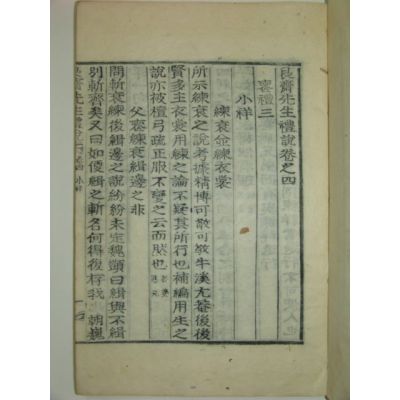 艮齋先生禮說卷之四
喪禮三
小祥
練衰金練衣裳
所示練衰之說考據精博可敬可敬牛溪尤菴後後
賢多主衣裳用練之論不疑其所行也補編用生之
說亦被檀弓疏正服不變之云而然也
父喪練衰緝邊之非
問斬衰練後緝邊之說紛紛未定魏顗曰緝與不緝
別斬齊矣又曰如復緝之斬名何得復存哉
艮齋先生禮說
卷四
小祥
一